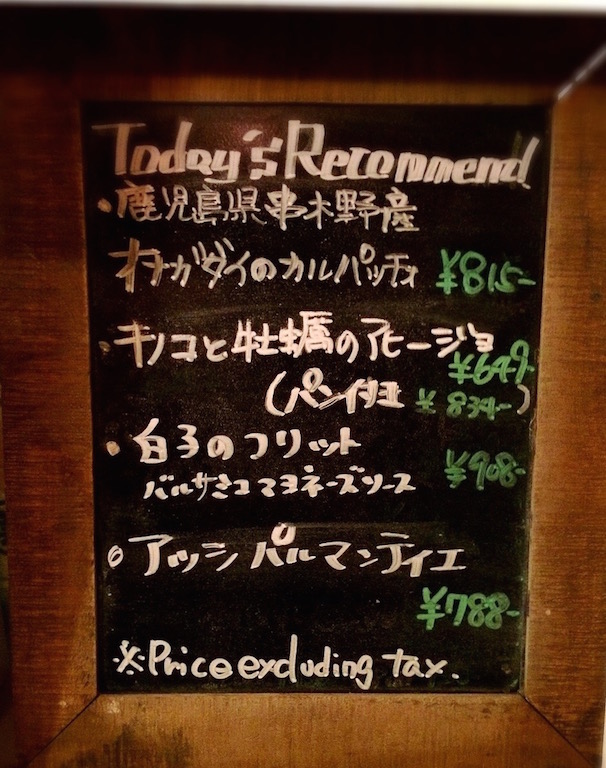 Today's Recommend
・鹿児島県串木野産
オナガダイのカルパッチョ ¥815-
・キノコと牡蠣のアヒージョ
¥649-
(パン付き ¥834-)
・白子のフリット
バルサミコマヨネーズソース ¥908-
・アッシパルマンティエ
¥788-
※Price excluding tax.